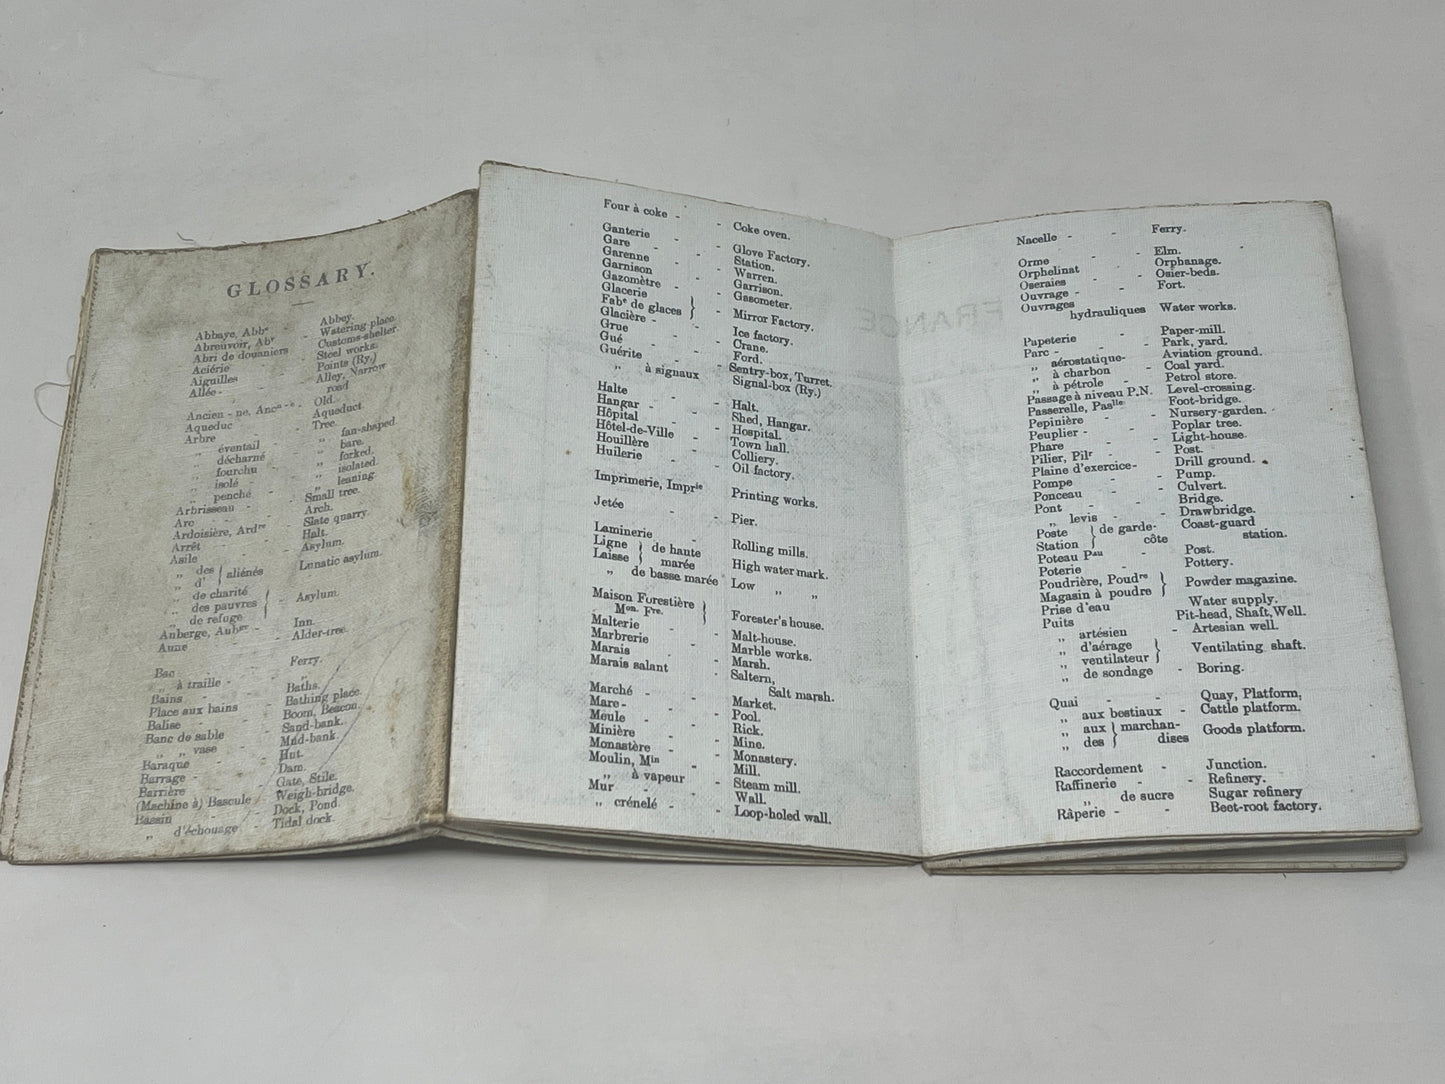 GLOSSARY.
Abbaye, Abbe - Abbey.
Abreuvoir, Abr - Watering place.
Abri de douaniers - Customs-shelter.
Aciérie - - Steel works.
Aiguilles - - Points (Ry.)
Allée - - - Alley, Narrow
road
Ancien - ne, Ancn - e - Old.
Aqueduc - - Aqueduct.
Arbre - - Tree.
„ éventail - „ fan-shaped
„ décharné - „ bare.
„ fourchu - „ forked.
„ isolé - - „ isolated.
„ penché - „ leaning.
Arbrisseau - - Small tree.
Arc - - - Arch.
Ardoisière, Ardre - Slate quarry.
Arrêt - - - Halt.
Asile - - - Asylum.
„ des } aliénés - Lunatic asylum.
„ d'
„ de charité
„ des pauvres } - Asylum.
„ de refuge
Auberge, Aubge - - Inn.
Aune - - Alder-tree.
Bac - - - Ferry.
„ à traille - - „
Bains - - - Baths.
Place aux bains - Bathing place.
Balise - - Boom, Beacon.
Banc de sable - Sand-bank.
„ „ vase - - Mud-bank.
Baraque - - Hut.
Barrage - - - Dam.
Barrière - - Gate, Stile.
(Machine à) Bascule - Weigh-bridge.
Bassin - - Dock, Pond.
„ d'échouage - Tidal dock.
Four à coke - - Coke oven.
Ganterie - - Glove Factory.
Gare - - - Station.
Garenne - - Warren.
Garnison - - Garrison.
Gazomètre - - Gasometer.
Glacerie
Fabe de glaces } - Mirror Factory.
Glacière - - Ice factory.
Grue - - - Crane.
Gué - - - Ford.
Guérite - - Sentry-box, Turret.
„ à signaux - Signal-box (Ry.)
Halte - - Halt.
Hangar - - - Shed, Hangar.
Hôpital - - Hospital.
Hôtel-de-Ville - Town hall.
Houillère - - Colliery.
Huilerie - - Oil factory.
Imprimerie, Imprie Printing works.
Jetée - - Pier.
Laminerie - Rolling mills.
Ligne } de haute
Laisse } marée High water mark.
„ de basse marée Low „ „
Maison Forestière
Mon. Fre. } Forester's house.
Malterie - - Malt-house.
Marbrerie - - Marble works.
Marais - - Marsh.
Marais salant - Saltern,
Salt marsh.
Marché - - Market.
Mare - - - Pool.
Meule - - Rick.
Minière - - Mine.
Monastère - - Monastery.
Moulin, Min - Mill.
„ à vapeur - Steam mill.
Mur - - Wall.
„ crénelé - - Loop-holed wall.
FRANCE
Nacelle - - Ferry.
Orme - - Elm.
Orphelinat - - Orphanage.
Oseraies - - Osier-beds.
Ouvrage - - Fort.
Ouvrages
hydrauliques Water works.
Papeterie - - Paper-mill.
Parc - - - Park, yard.
„ aérostatique- Aviation ground.
„ à charbon - Coal yard.
„ à pétrole - Petrol store.
Passage à niveau P.N. Level-crossing.
Passerelle, Paslle - Foot-bridge.
Pepinière - - Nursery-garden.
Peuplier - - Poplar tree.
Phare - - Light-house.
Pilier, Pilr - - Post.
Plaine d'exercice- Drill ground.
Pompe - - Pump.
Ponceau - - Culvert.
Pont - - - Bridge.
„ levis - - Drawbridge.
Poste } de garde- Coast-guard
Station } côte station.
Poteau Pau - Post.
Poterie - Pottery.
Poudrière, Poudre } Powder magazine.
Magasin à poudre
Prise d'eau Water supply.
Puits Pit-head, Shaft, Well.
„ artésien - Artesian well.
„ d'aérage } Ventilating shaft.
„ ventilateur
„ de sondage - Boring.
Quai - - Quay, Platform,
„ aux bestiaux - Cattle platform.
„ aux } marchan-
„ des } dises Goods platform.
Raccordement - Junction.
Raffinerie - - Refinery.
„ de sucre Sugar refinery
Râperie - - Beet-root factory.